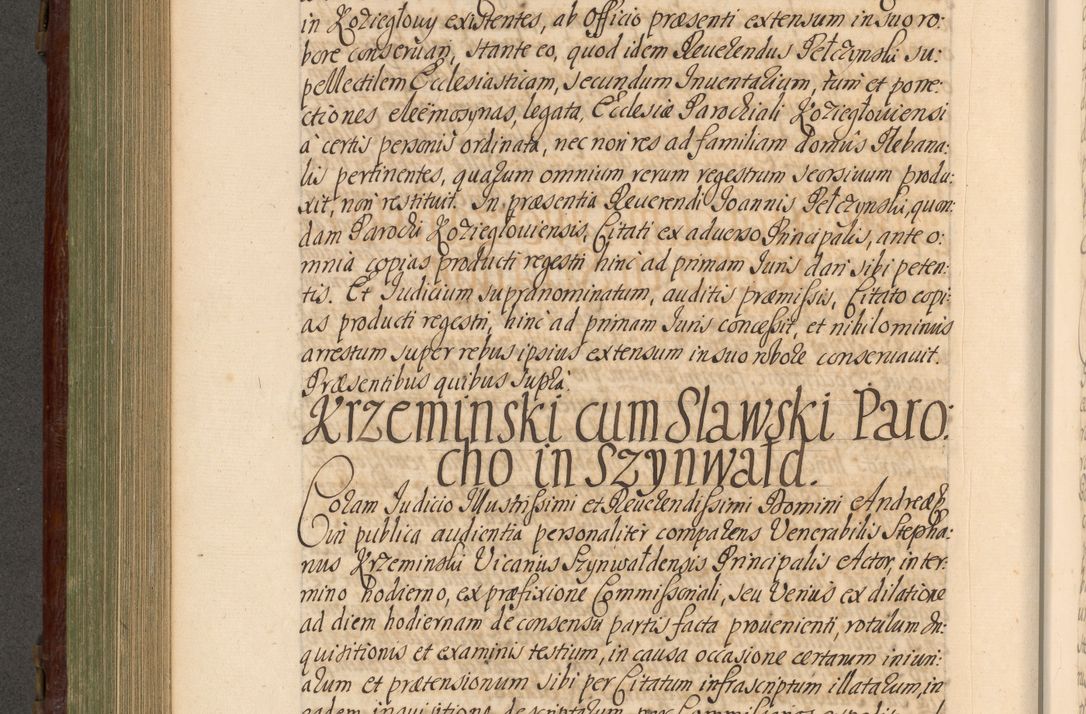 in Kozieglowy existentes, ab Officio præsenti extensum in suo ro:
bore conservari, stante eo, quod idem Reverendus Pełczynski su:
pellectilem Ecclesiasticam, secundum Inventarium, tum et porre:
ctiones eleëmosynas, legata, Ecclesiæ Parochiali Koziegłoviensi
à certis personis ordinata, nec non res ad familiam domûs Pleb ana:
lis pertinentes, quarum omnium rerum regestrum seorsivum produ:
xit, non restituit. In præsentia Reverendi Joannis Pełczynski, quon:
dam Parochi Koziegłoviensis, Citati ex adverso Principalis, ante o:
mnia copias producti regestri hinc ad primam Juris dari sibi peten:
tis. Et Judicium supranominatum, auditis præmissis, Citato copi:
as producti regestri, hinc ad primam Juris concessit, et nihilominus
arrestum super rebus ipsius extensum in suo robore conservavit.
Præsentibus quibus supra.
Krzeminski cum Slawski Paro:
cho in Szynwałd.
Coram Judicio Illustrissimi et Reverendissimi Domini Andreæ
in publica audientia personaliter comparens Venerabilis Stepha:
nus Krzeminski Vicarius Szynwałdensis Principalis Actor, in ter:
mino hodierno, ex præfixione Commissoriali, seu verius ex dilatione
ad diem hodiernam de consensu partis facta provenienti, rotulum In:
quisitionis et examinis testium, in causa occasione certarum iniuri:
arum et prætensionum sibi per Citatum infrascriptum illatarum, in
eadem inquisitione descriptarum, per Commissarios